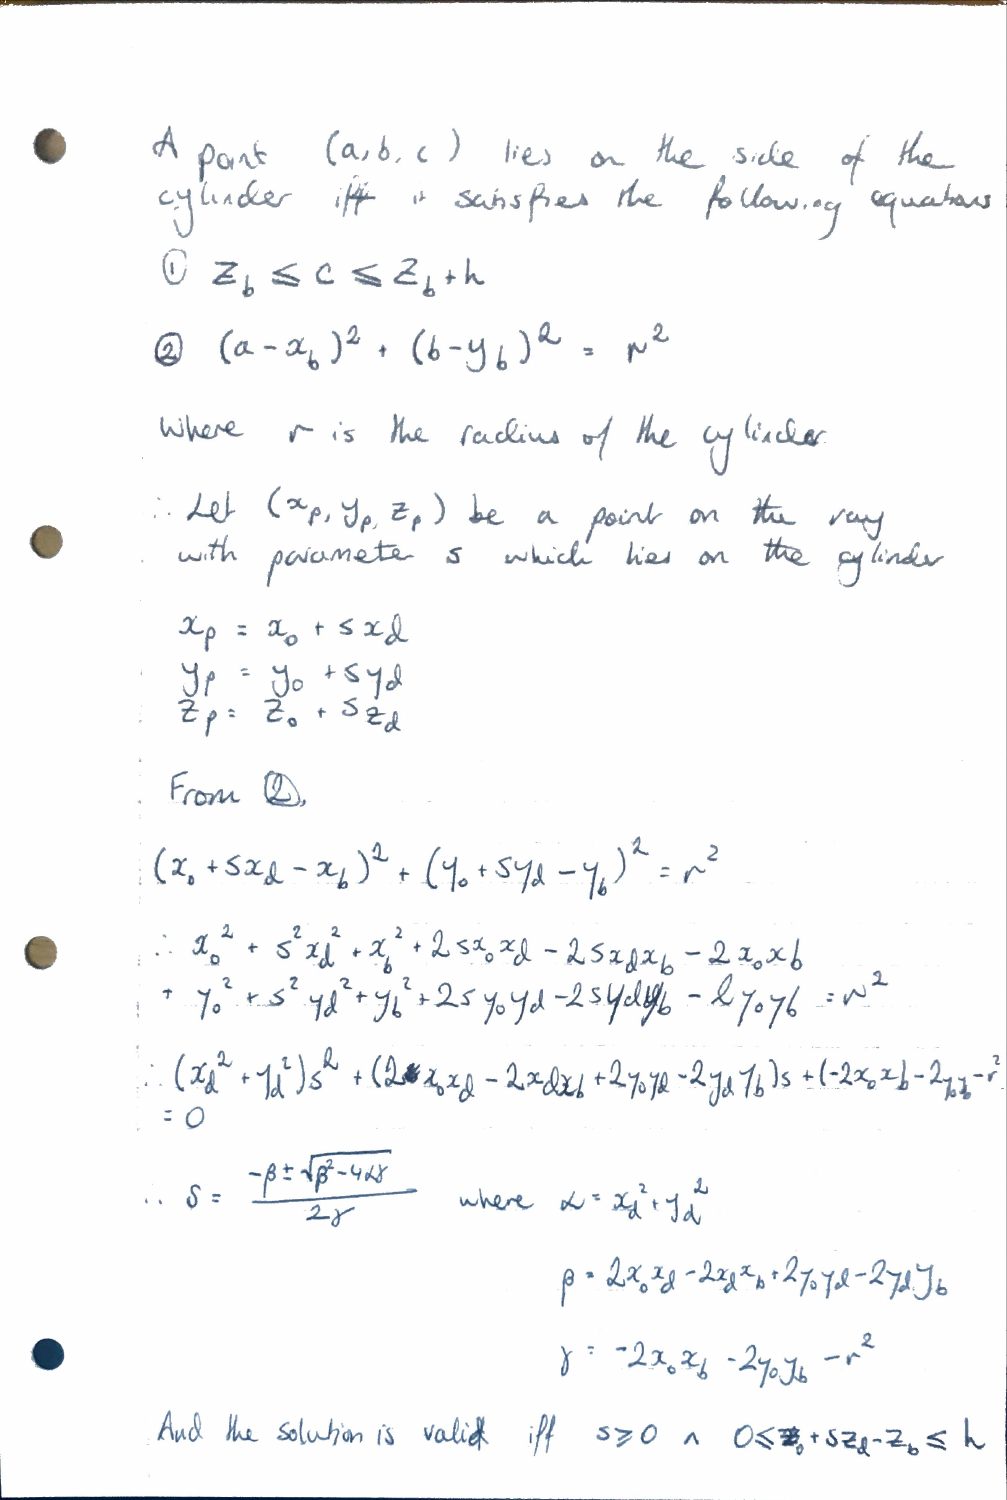 A point (a, b, c) lies on the side of the
cylinder iff it satisfies the following equations
① z_b ≤ c ≤ z_b + h
② (a - x_b)² + (b - y_b)² = r²
Where r is the radius of the cylinder
∴ Let (x_p, y_p, z_p) be a point on the ray
with parameter s which lies on the cylinder
x_p = x_0 + s x_d
y_p = y_0 + s y_d
z_p = z_0 + s z_d
From ②,
(x_0 + s x_d - x_b)² + (y_0 + s y_d - y_b)² = r²
∴ x_0² + s² x_d² + x_b² + 2 s x_0 x_d - 2 s x_d x_b - 2 x_0 x_b
+ y_0² + s² y_d² + y_b² + 2 s y_0 y_d - 2 s y_d y_b - 2 y_0 y_b = r²
∴ (x_d² + y_d²)s² + (2 x_0 x_d - 2 x_d x_b + 2 y_0 y_d - 2 y_d y_b)s + (-2 x_0 x_b - 2 y_0 y_b - r²
= 0
∴ s = (-β ± √(β² - 4αγ)) / 2γ where α = x_d² + y_d²
β = 2 x_0 x_d - 2 x_d x_b + 2 y_0 y_d - 2 y_d y_b
γ = -2 x_0 x_b - 2 y_0 y_b - r²
And the solution is valid iff s ≥ 0 ∧ 0 ≤ z_0 + s z_d - z_b ≤ h